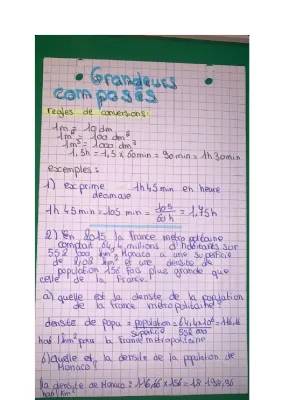 Grandeurs
composés
regles de conversions:
1m = 10 dm
1m² = 100 dm²
1m³ = 1000 dm³
1,5h = 1,5 x 60min = 90min = 1h30min
exemples:
1) exprime 1h45min en heure
décimase
1h 45 min = 105 min = 105/60 h = 1,75h
2) En 2015 la France métropolitaine
comptait 64,4 millions d'habitants sur
552 000 km² Monaco a une superficie
de 2,02 km² et une densité de
population 156 fois plus grande que
celle de la France.
a) quelle est la densité de la population
de la France métropolitaine?
densité de popu = population/superficie = 64,4x10⁶/552 000 = 116,66
hab/km² pour la France métropolitaine
b) Quelle est la densité de la population de
Monaco?
la densité de Monaco = 116,66 x 156 = 18 198,96
hab/km²